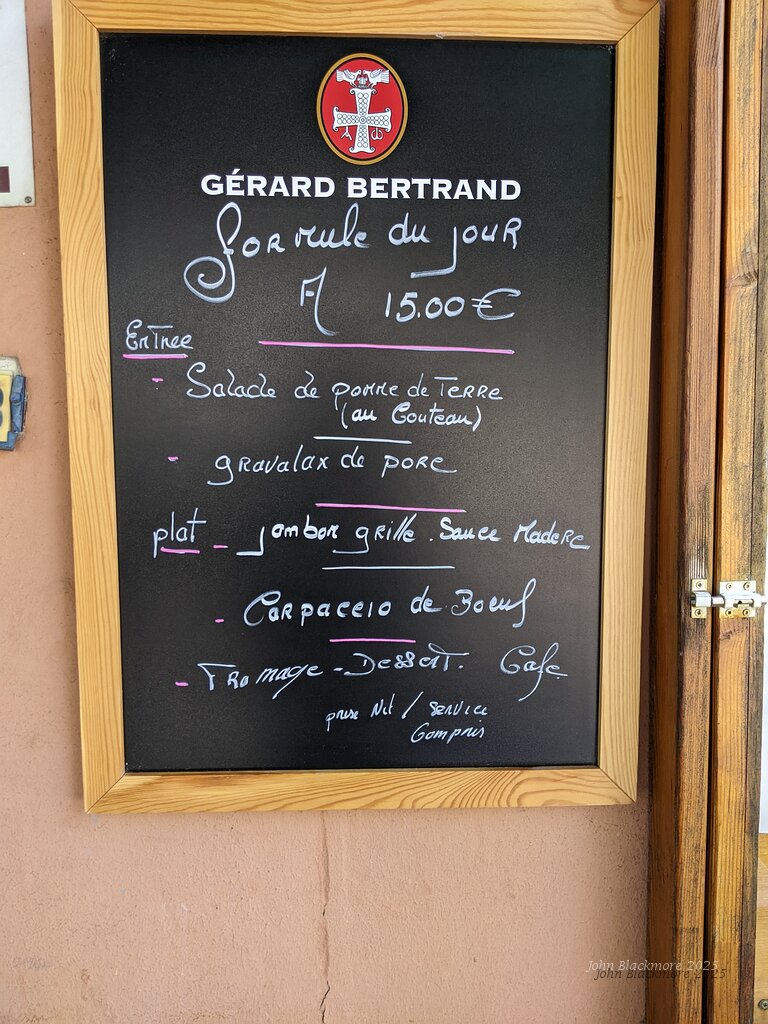 GÉRARD BERTRAND
Formule du jour
A 15.00€
Entree
- Salade de pomme de Terre
(au Couteau)
- gravalax de porc
plat - jambon grille. Sauce Madere
- Carpaccio de Boeuf
- Fromage - Dessert. Cafe
Net / service
Compris
John Blackmore 2025
John Blackmore 2025